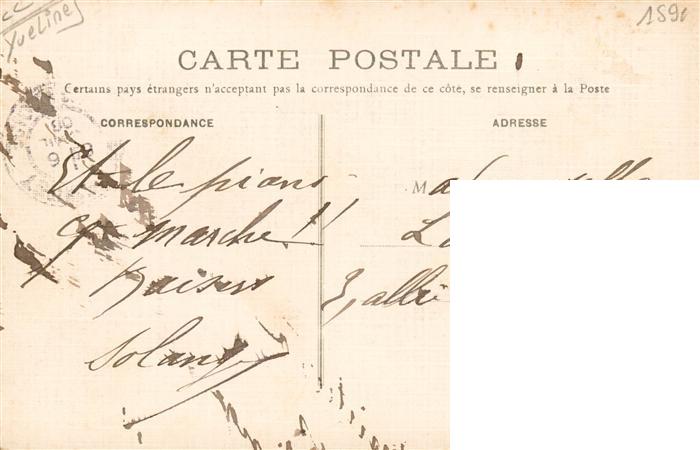 Yveline
1890
CARTE POSTALE
Certains pays étrangers n'acceptent pas la correspondance de ce côté, se renseigner à la Poste
CORRESPONDANCE
ADRESSE
Et le piano
ça marche!!
Baisers
Solange
M
3, allée